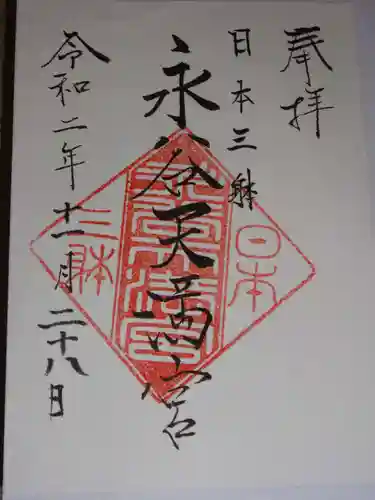 奉拝
日本三躰
永谷天満宮
令和二年十一月二十八日
日本
三躰